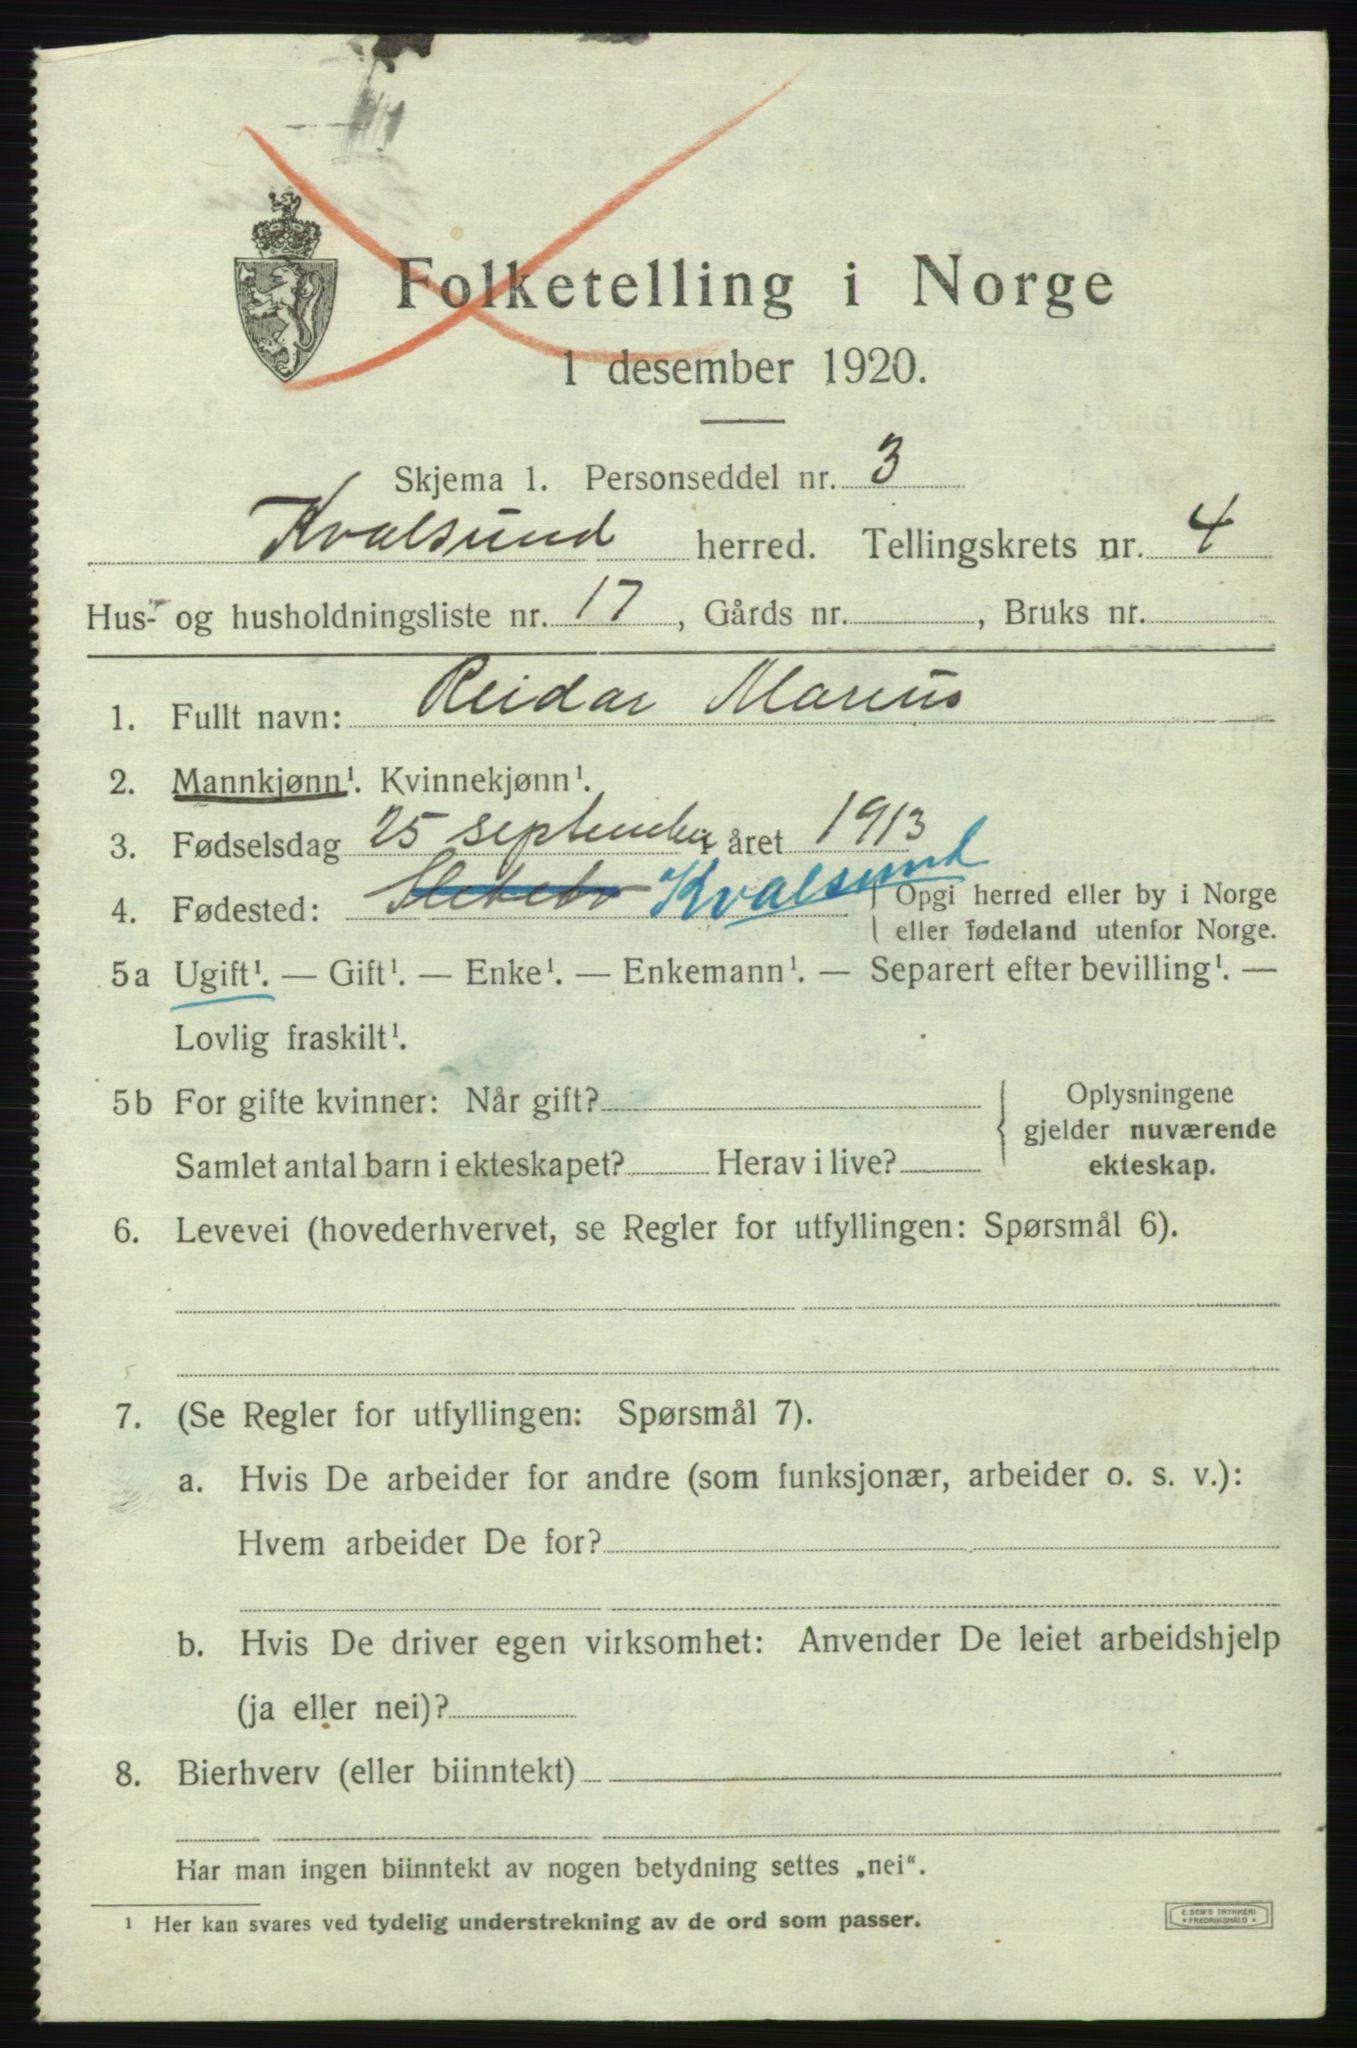 Folketelling i Norge
1 desember 1920.
Skjema 1. Personseddel nr. 3
Kvalsund herred. Tellingskrets nr. 4
Hus- og husholdningsliste nr. 17, Gårds nr. , Bruks nr.
1. Fullt navn: Reidar Marius
2. Mannkjønn¹. Kvinnekjønn¹.
3. Fødselsdag 25 september året 1913
4. Fødested: Kvalsund { Opgi herred eller by i Norge
eller fødeland utenfor Norge.
5a Ugift¹. — Gift¹. — Enke¹. — Enkemann¹. — Separert efter bevilling¹. —
Lovlig fraskilt¹.
5b For gifte kvinner: Når gift? { Oplysningene
gjelder nuværende
Samlet antal barn i ekteskapet? Herav i live? ekteskap.
6. Levevei (hovederhvervet, se Regler for utfyllingen: Spørsmål 6).
7. (Se Regler for utfyllingen: Spørsmål 7).
a. Hvis De arbeider for andre (som funksjonær, arbeider o. s. v.):
Hvem arbeider De for?
b. Hvis De driver egen virksomhet: Anvender De leiet arbeidshjelp
(ja eller nei)?
8. Bierhverv (eller biinntekt)
Har man ingen biinntekt av nogen betydning settes „nei“.
¹ Her kan svares ved tydelig understrekning av de ord som passer.
E. SEM'S TRYKKERI
* FREDRIKSHALD *